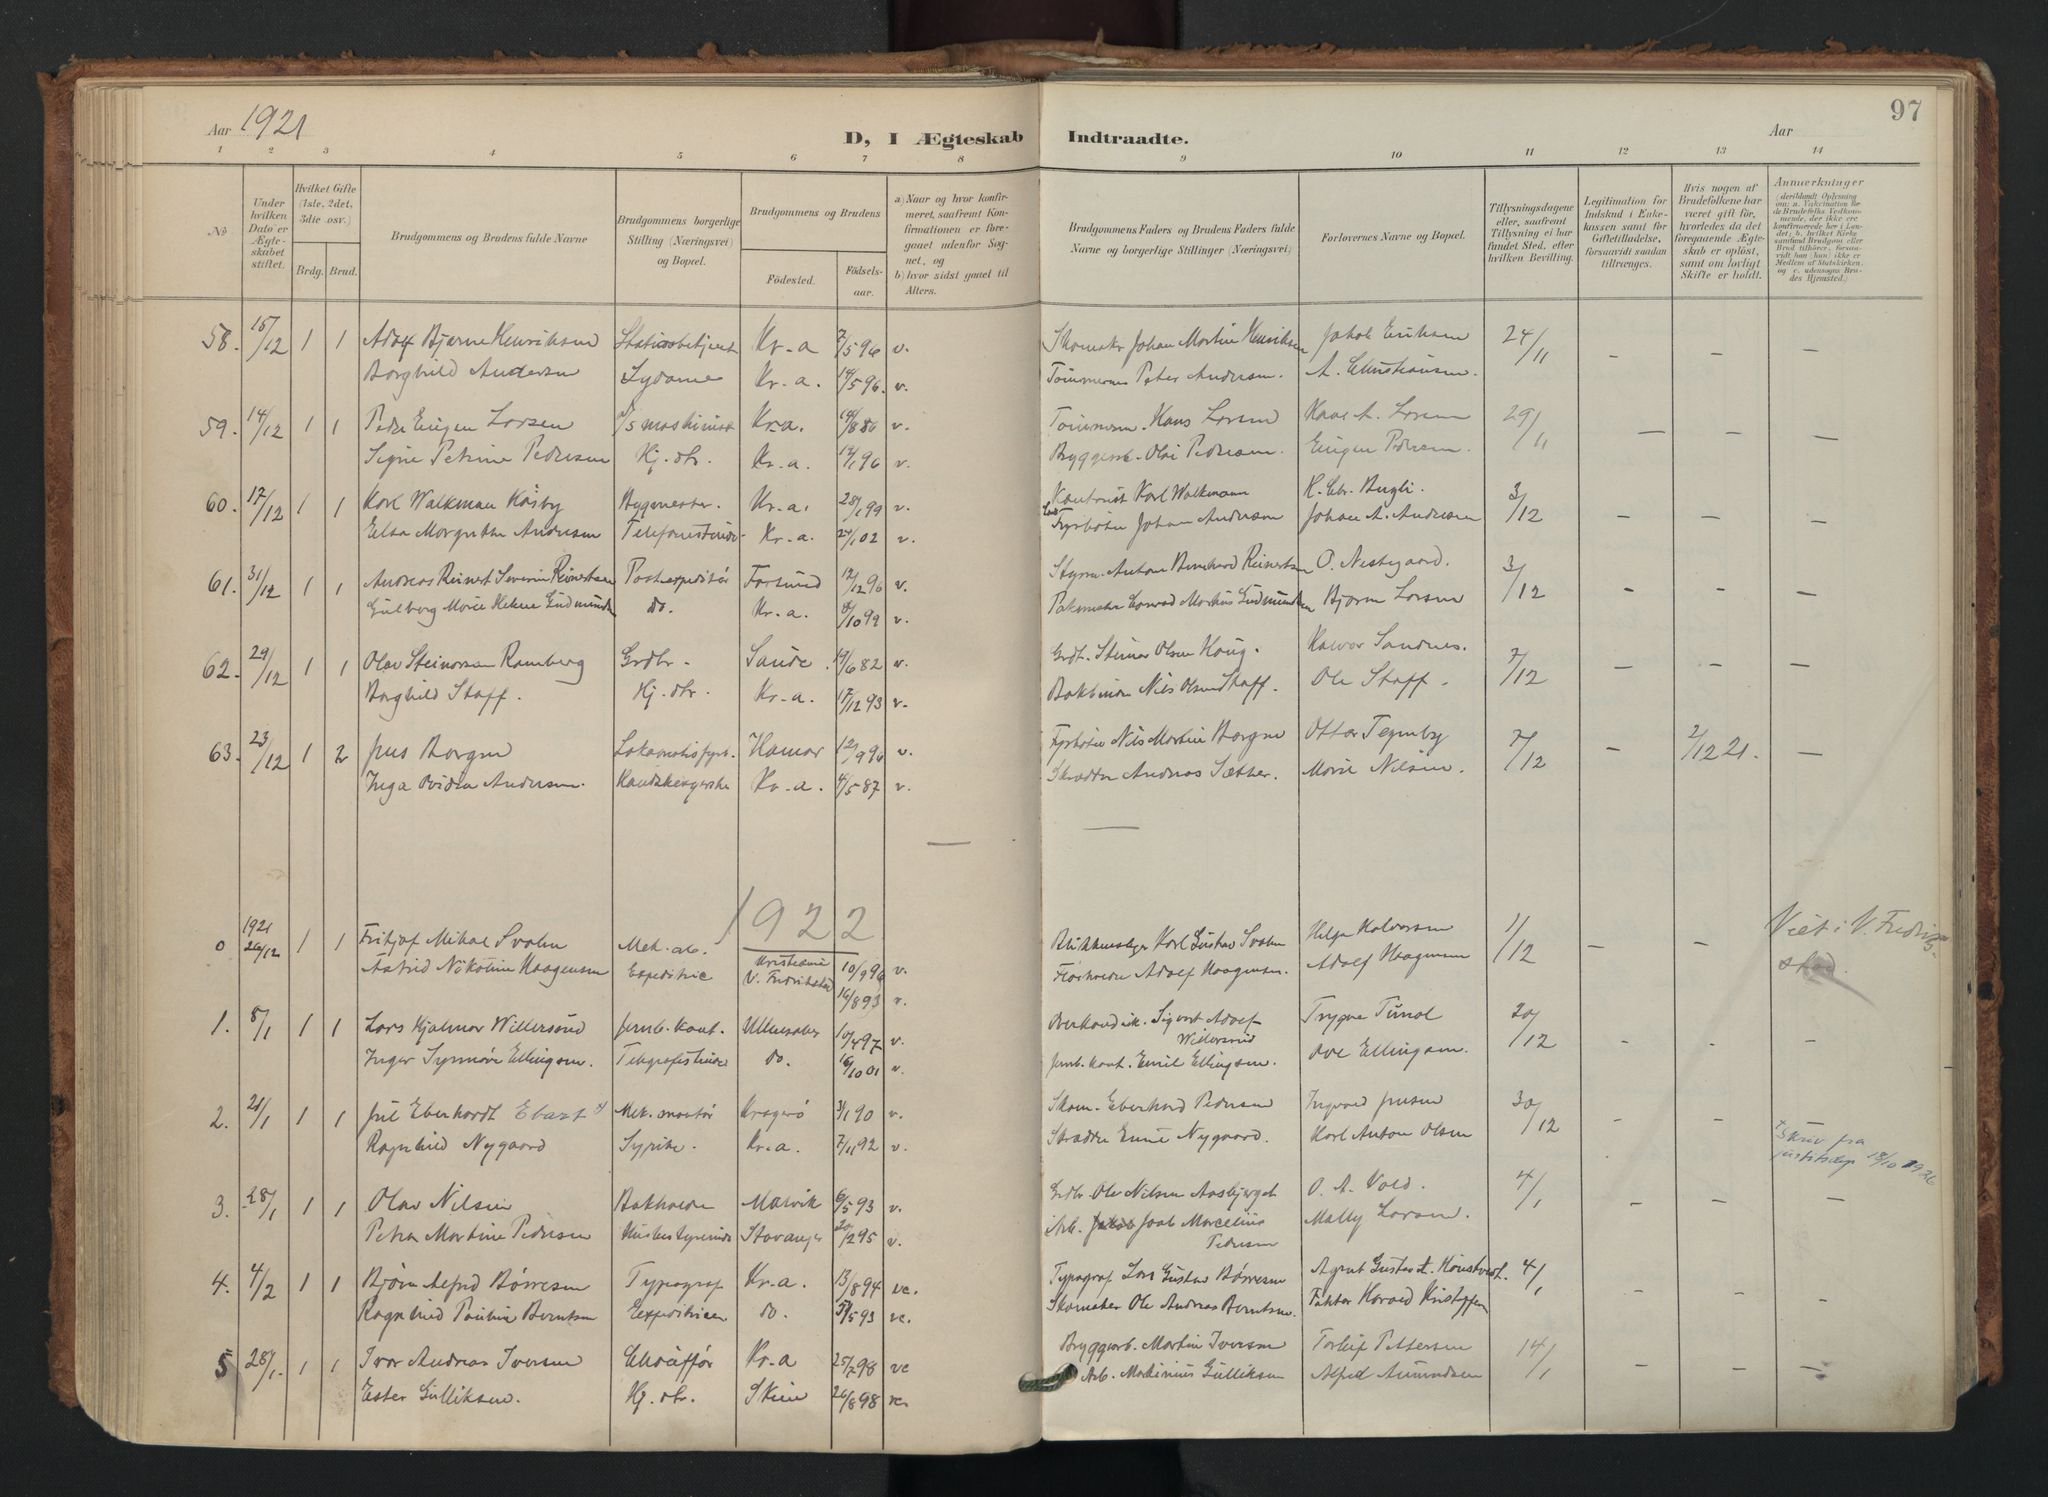 Aar 1921
D, I Ægteskab Indtraadte.
Aar
97
1 2 3 4 5 6 7 8 9 10 11 12 13 14
No
Under hvilken Dato er Ægteskabet stiftet.
Hvilket Gifte (1ste, 2det, 3die osv.)
Brdg. Brud.
Brudgommens og Brudens fulde Navne
Brudgommens borgerlige Stilling (Næringsvei) og Bopæl.
Brudgommens og Brudens
Födested. Födselsaar.
a) Naar og hvor konfirmeret, saafremt Konfirmationen er foregaaet udenfor Sognet, og
b) hvor sidst gaaet til Alters.
Brudgommens Faders og Brudens Faders fulde Navne og borgerlige Stillinger (Næringsvei)
Forlovernes Navne og Bopæl.
Tillysningsdagene eller, saafremt Tillysning ei har fundet Sted, efter hvilken Bevilling.
Legitimation for Indskud i Enkekassen samt for Giftetilladelse, forsaavidt saadan tiltrænges.
Hvis nogen af Brudefolkene har været gift för, hvorledes da det foregaaende Ægteskab er oplöst, samt om lovligt Skifte er holdt.
Anmærkninger
58. 15/12 1 1 Adolf Bjarne Henriksen Stationsbetjent Kr-a 7/5 96 v. Skomaker Johan Martin Henriksen Jakob Eriksen 24/11 – – –
Borghild Andersen Sydame Kr.a. 14/5 96. v. Tömmerm Peter Andersen. A. Christiansen.
59. 14/12 1 1 Peder Eugen Larsen maskinist Kr.a. 14/8 86 v. Tömmerm. Hans Larsen Hans A. Larsen 29/11 – – –
Signe Petrine Pedersen Hj. dtr. Kr.a. 12/1 96 v. Byggearb. Olai Pedersen. Eugen Pedersen.
60. 17/12 1 1 Karl Walkman Kåsby Bygmester. Kr.a. 28/1 99 v. Karl Walkmann H. Chr. Bugli. 3/12 – – –
Elsa Margrethe Andersen Telefonistinde Kr-a. 24/1 02 v. Fyrböter Johan Andersen Johan A. Andersen
61. 31/12 1 1 Andreas Reinert Severin Reinertsen Postexpeditör Farsund 12/12 96 v. Styrm. Anton Bernhard Reinertsen O. Nestegaard. 3/12 – – –
Gulborg Marie Helene Gudmundsen do. Kr.a. 8/10 99 v. Pakmester Conrad Markus Gudmundsen Bjarne Larsen
62. 29/12 1 1 Olav Steinarson Ramberg Grdbr. Sande 19/6 82 v. Grdb. Steinar Olsen Haug. Halvor Sandnes. 7/12 – – –
Borghild Staff. Hj. dtr. Kr-a. 17/12 93 v. Bokbinder Nils Olsen Staff. Ole Staff.
63. 23/12 1 2 Jens Borgen Lokomotivfyrb. Hamar 12/9 96 v. Fyrböter Nils Martin Borgen Ottar Tegneby 7/12 – 2/12 21. –
Inga Ovidia Andersen. Handskesyerske Kr.a. 4/5 87 v. Skrædder Andreas Sæther. Marie Nilsen.
1922
0 1921 26/12 1 1 Fritjof Mikal Svalm Mek. arb. Kristiania 10/9 96 v. Blikkenslager Karl Gustav Svalm Helga Halvorsen 11/12 – – Viet i V. Fredrikstad.
Astrid Nikoline Haagensen Expeditrice V. Fredrikstad 16/8 93 v. Adolf Haagensen. Adolf Haagensen
1. 8/1 1 1 Lars Hjalmar Willersrud Jernb. kont. Ullensaker 10/4 97 v. Sigvart Adolf Willersrud Trygve Tunold 20/12 – – –
Inger Synnöve Ellingsen. Telegrafistinde do. 16/10 01 v. Jernb. kont. Emil Ellingsen. Ove Ellingsen.
2. 21/1 1 1 Jul Eberhardt Ebart x) Mek. montör Kragerö 3/1 90 v. Skom. Eberhard Pedersen Ingvald Jensen 30/12 – –
Ragnhild Nygaard Syerske. Kr.a. 7/11 92 v. Skrædder Emil Nygaard. Karl Anton Olsen
x Skriv fra justitsdep 18/10 1926
3. 28/1 1 1 Olav Nilsen Bokholder Malvik 6/5 93 v. Grdbr. Ole Nilsen Aasbjerget O. A. Vold. 4/1 – – –
Petra Martine Pedersen Husbestyrerinde Stavanger 20/2 95 v. Arb. Joab Marcelius Pedersen Mally Larsen.
4. 4/2 1 1 Björn Alfred Börresen Typograf Kr.a. 13/8 94 vc. Typograf Lars Gustav Börresen Agent Gustav A. 4/1 – – –
Ragnhild Pauline Berntsen Expeditrice do. 5/5 93 vc. Skomaker Ole Andreas Berntsen. Faktor Harald Kristoffersen
5 28/1. 1 1 Ivar Andreas Iversen Chauffør Kr.a 25/2 98 vc Bryggearb. Martin Iversen Torleif Pettersen 14/1 – – –
Ester Gulliksen. Hj. dtr. Skien 26/8 98 vc. Arb. Martinius Gulliksen Alfred Amundsen